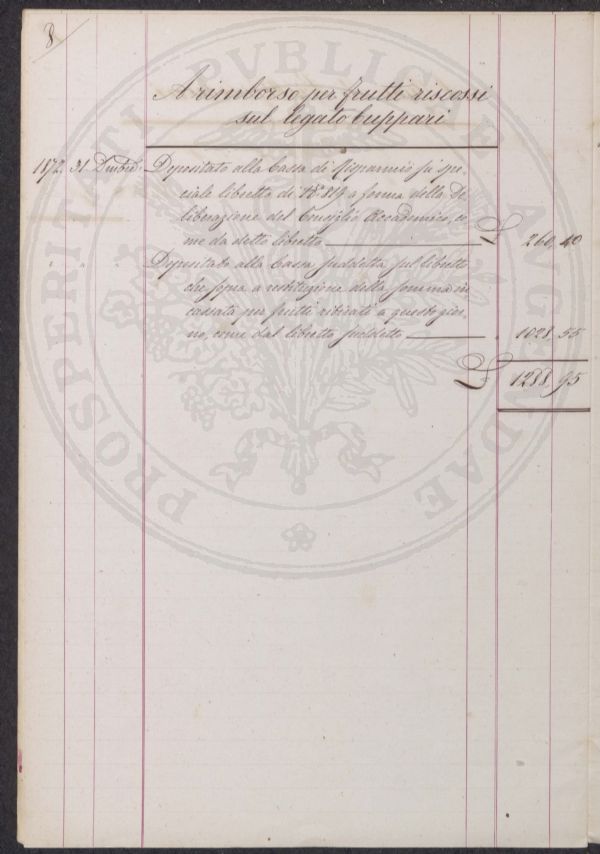 8
A rimborso per frutti riscossi
sul legato Cuppari
1872. 31 Dicembre Depositato alla Cassa di Risparmio su spe-
ciale libretto di N.° 819 a forma della De
liberazione del Consiglio Accademico, co
me da detto libretto £ 260, 40
" " " Depositato alla Cassa suddetta sul libretto
che sopra a restituzione della somma in
cassata per frutti ritirati a questo gior-
no, come dal libretto suddetto " 1028, 55
£ 1288, 95
PROSPERITATI PVBLICAE AVGENDAE